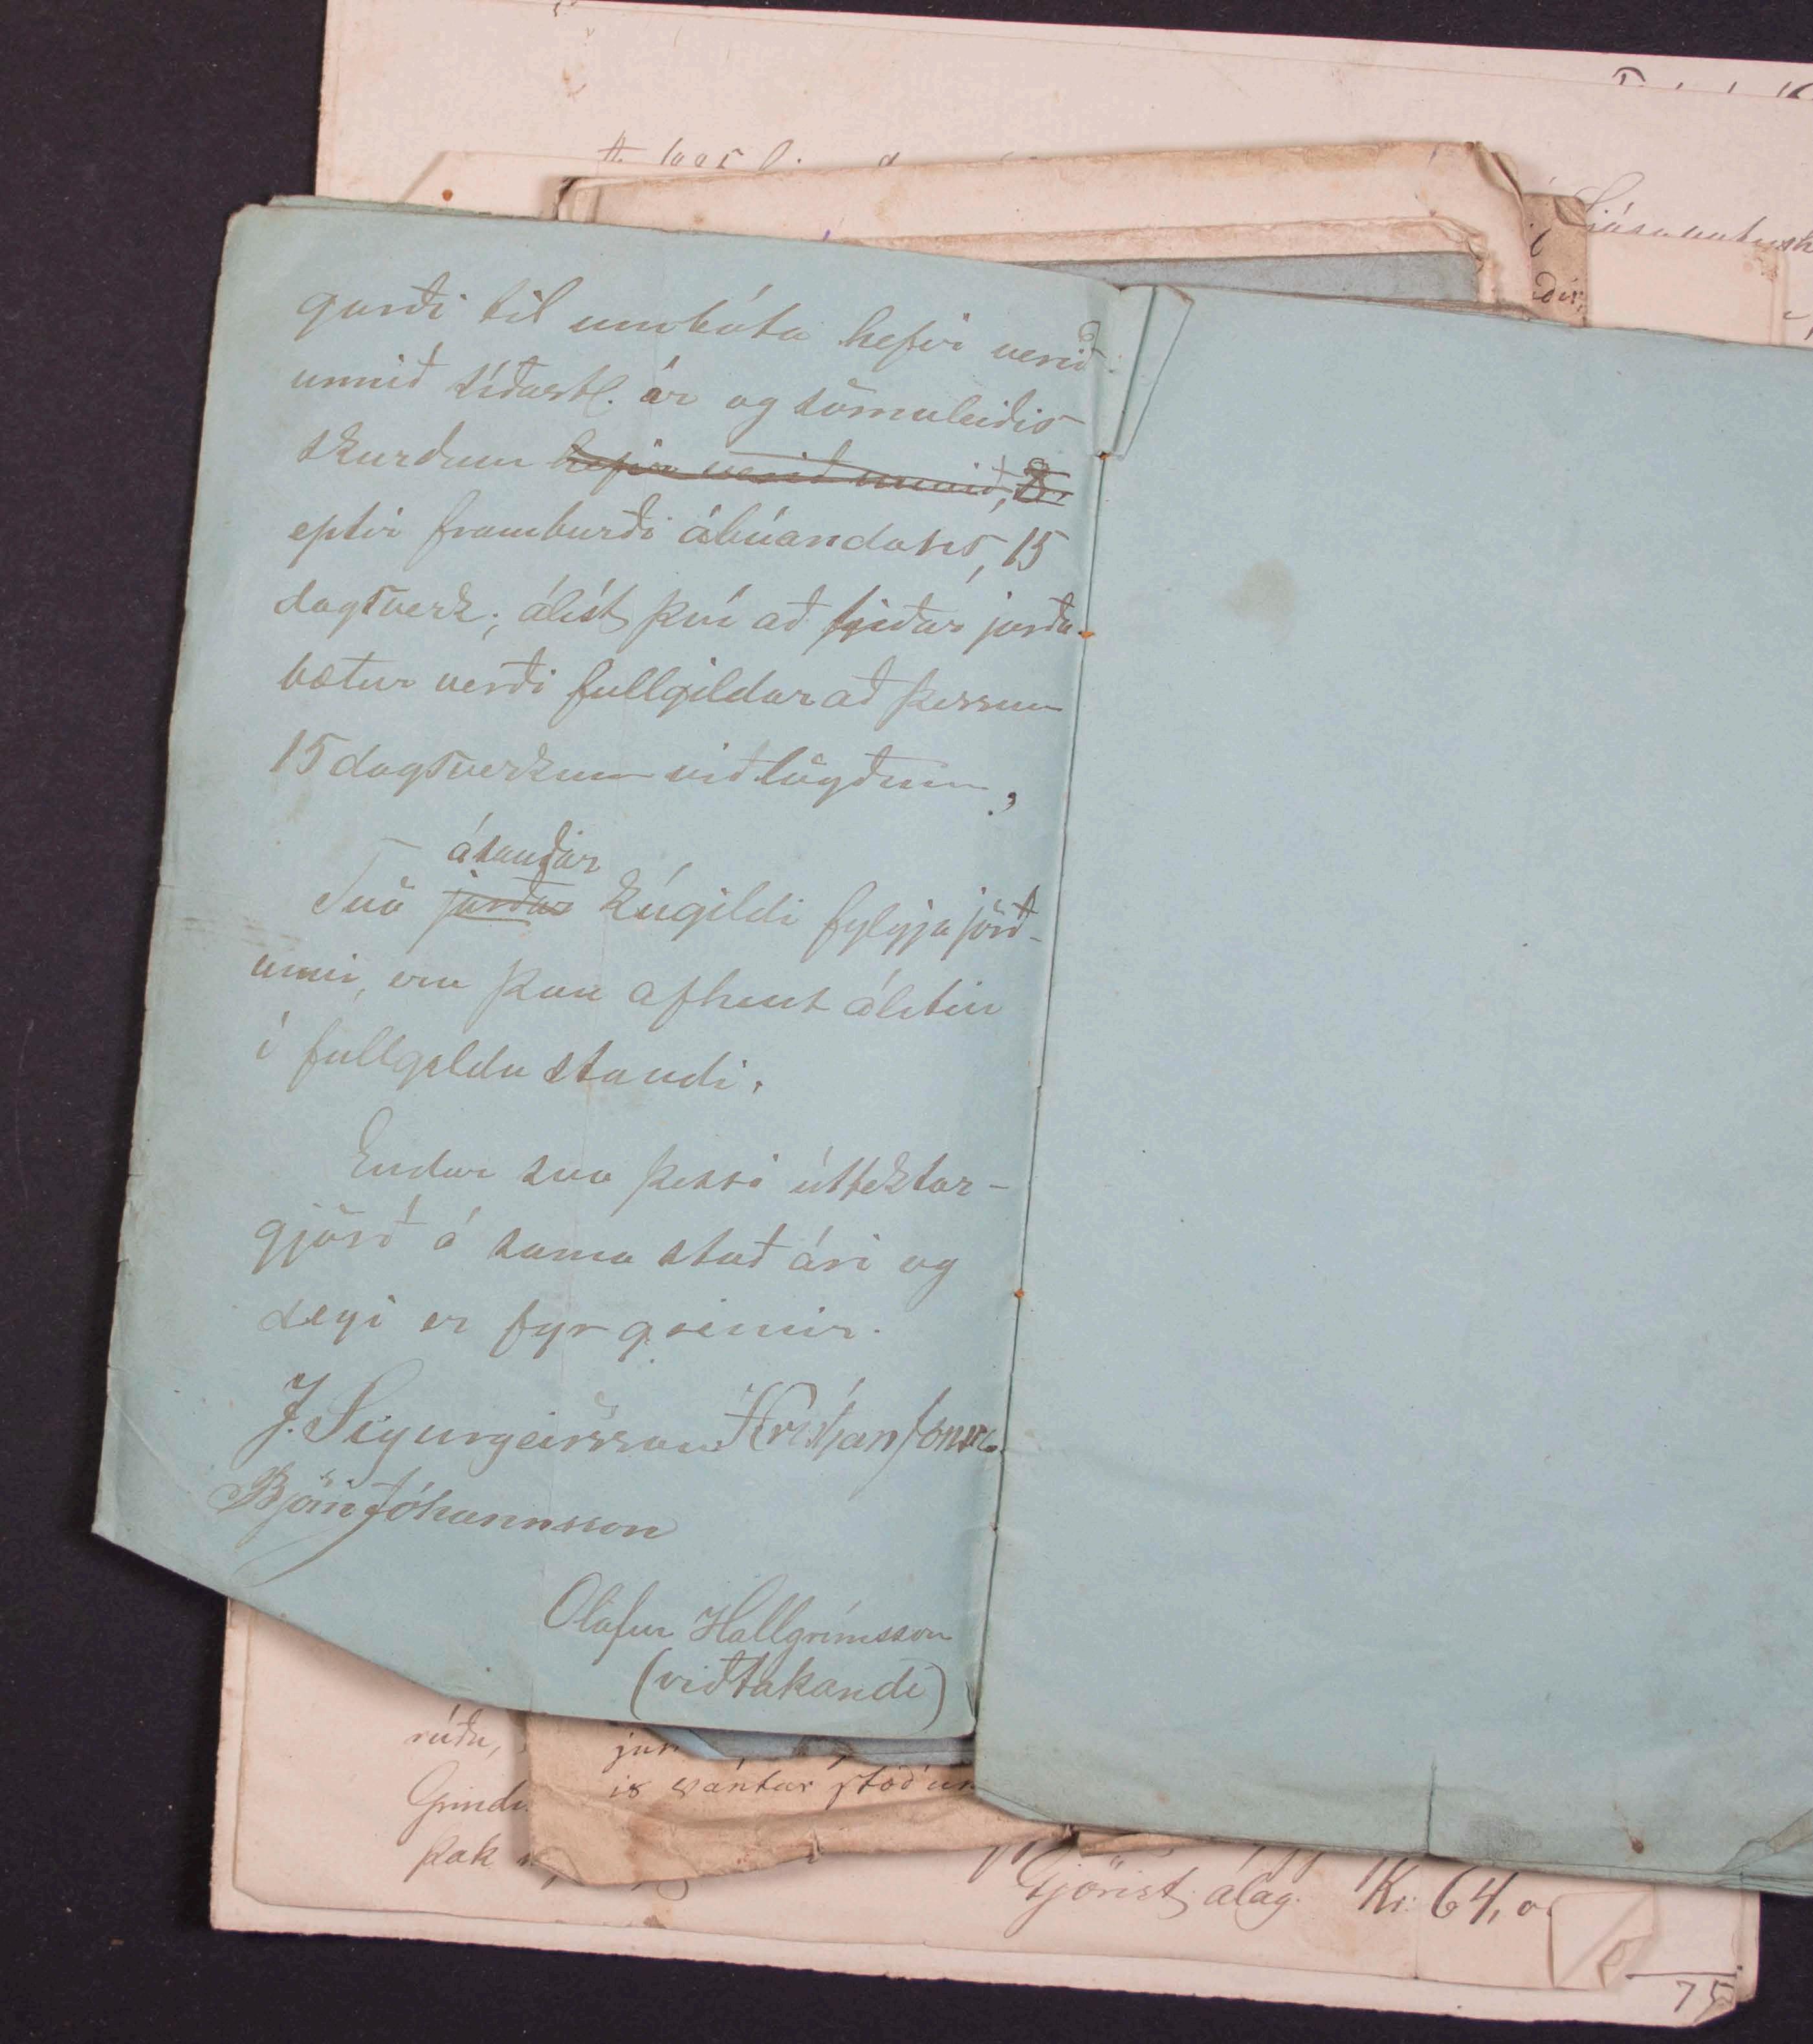 garði til umbóta hefir verið
unnið síðastl. ár og sömuleiðis
skurðum hefir verið unnið,
eptir framburði ábúandans, 15
dagsverk; álíst því að tjeðar jarða-
bætur verði fullgildar að þessum
15 dagsverkum viðlögðum,
ásauðar
Tvö jarðar kúgildi fylgja jörð-
unni, eru þau afhent álitin
í fullgildu standi.
Endar svo þessi úttektar-
gjörð á sama stað ári og
degi er fyr greinir.
J. Sigurgeirsson Kristján Jónsson
Björn Jóhannsson
Olafur Hallgrímsson
(viðtakandi)
rúðu,
Grind
is vantar stoð
þak
Gjörist álag. Kr: 64,
75